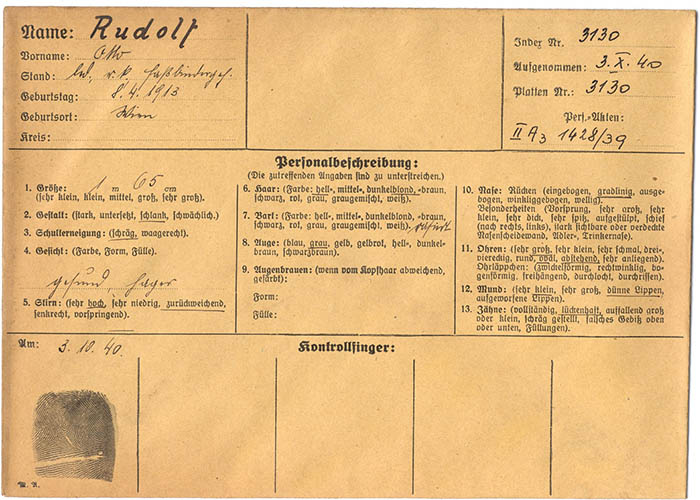 Name: Rudolf
Vorname: Otto
Stand: led, r. k. Faßbinderges.
Geburtstag: 8. 4. 1913
Geburtsort: Wien
Kreis:
Index Nr. 3130
Aufgenommen: 3. X. 40
Platten Nr.: 3130
Pers.-Akten:
II A3 1428/39
Personalbeschreibung:
(Die zutreffenden Angaben sind zu unterstreichen.)
1. Größe: 1 m 65 cm
(sehr klein, klein, mittel, groß, sehr groß).
2. Gestalt: (stark, untersetzt, schlank, schwächlich).
3. Schulterneigung: (schräg, waagerecht).
4. Gesicht: (Farbe, Form, Fülle).
gesund, hager
5. Stirn: (sehr hoch, sehr niedrig, zurückweichend,
senkrecht, vorspringend).
6. Haar: (Farbe: hell-, mittel-, dunkelblond, -braun,
schwarz, rot, grau, graugemischt, weiß).
7. Bart: (Farbe: hell-, mittel-, dunkelblond, -braun,
schwarz, rot, grau, graugemischt, weiß).
8. Auge: (blau, grau, gelb, gelbrot, hell-, dunkel-
braun, schwarzbraun).
9. Augenbrauen: (wenn vom Kopfhaar abweichend,
gefärbt):
Form:
Fülle:
10. Nase: Rücken (eingebogen, gradlinig, ausge-
bogen, winkliggebogen, wellig).
Besonderheiten (Vorsprung, sehr groß, sehr
klein, sehr dick, sehr spitz, aufgestülpt, schief
(nach rechts, links), stark sichtbare oder verdeckte
Nasenscheidewand, Adler-, Trinkernase).
11. Ohren: (sehr groß, sehr klein, sehr schmal, drei-,
viereckig, rund, oval, abstehend, sehr anliegend).
Ohrläppchen: (zwickelförmig, rechtwinklig, bo-
genförmig, freihängend, durchlocht, durchrissen).
12. Mund: (sehr klein, sehr groß, dünne Lippen,
aufgeworfene Lippen).
13. Zähne: (vollständig, lückenhaft, auffallend groß
oder klein, schräg gestellt, falsches Gebiß oben
oder unten, Füllungen).
Am: 3. 10. 40.
Kontrollfinger: